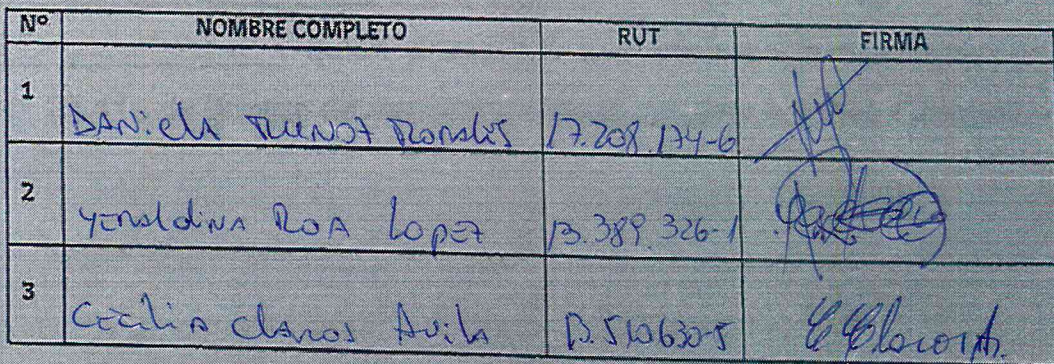 Nº NOMBRE COMPLETO RUT FIRMA
1 DANiela MUÑOZ MORALES 17.208.174-6
2 YENALDiNA ROA LopEZ 13.389.326-1
3 CECiliA Claros Avila 13.510630-5